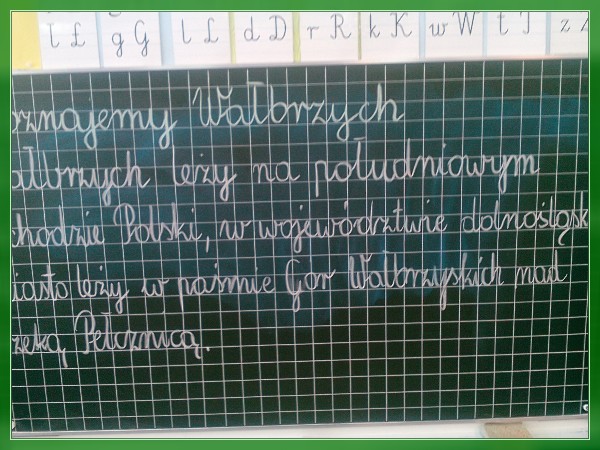 ł Ł g G l L d D r R k K w W t T z
oznajemy Wałbrzych
ałbrzych leży na południowym
chodzie Polski, w województwie dolnośląsk
iasto leży w paśmie Gór Wałbrzyskich nad
zeką Pełcznicą.